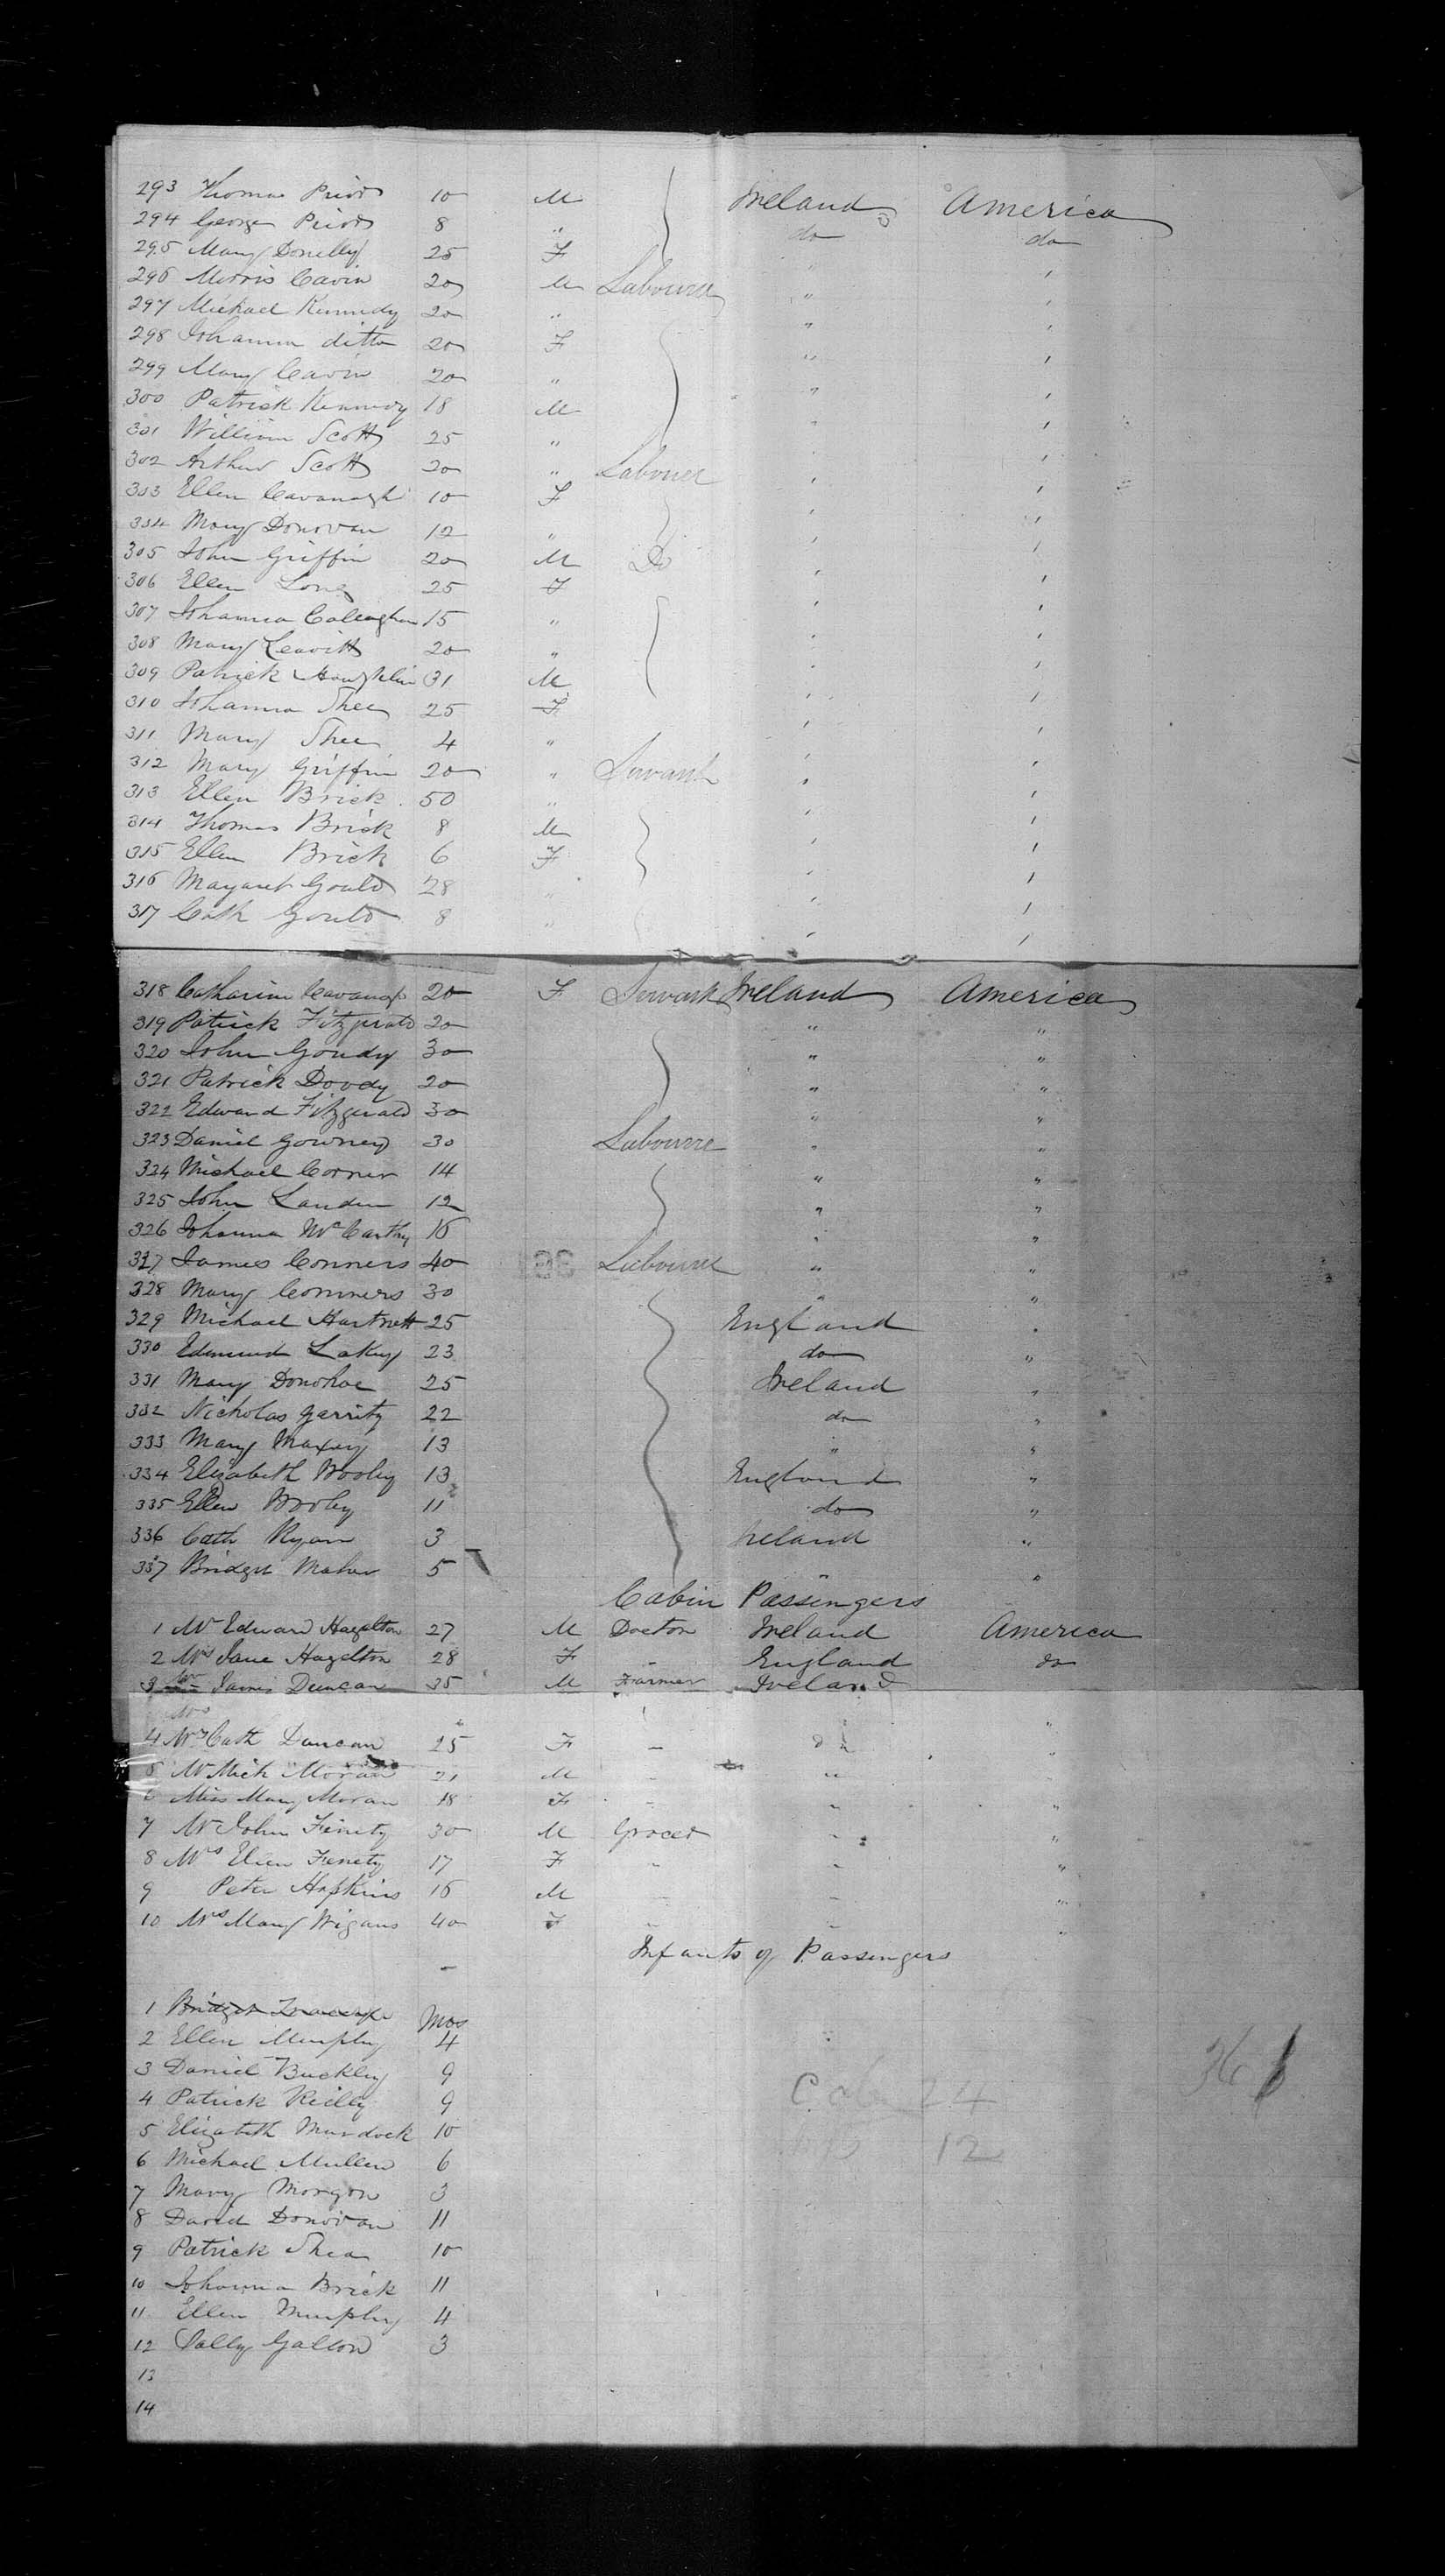 293 Thomas Prior 10 M Ireland America
294 George Prior 8 " do do
295 Mary Donelly 25 F " "
296 Morris Cavin 20 M Labourer " "
297 Michael Kennedy 20 " " "
298 Johanna ditto 20 F " "
299 Mary Cavin 20 " " "
300 Patrick Kennedy 18 M " "
301 William Scott 25 " " "
302 Arthur Scott 20 " Labourer " "
303 Ellen Cavanagh 10 F " "
304 Mary Donovan 12 " " "
305 John Griffin 20 M Do " "
306 Ellen Long 25 F " "
307 Johanna Callaghan 15 " " "
308 Mary Leavitt 20 " " "
309 Patrick Houghlin 31 M " "
310 Johanna Shee 25 F " "
311 Mary Shee 4 " " "
312 Mary Griffin 20 " Servant " "
313 Ellen Brick 50 " " "
314 Thomas Brick 8 M " "
315 Ellen Brick 6 F " "
316 Margaret Gould 28 " " "
317 Cath Gould 8 " " "
318 Catharine Cavanagh 20 F Servant Ireland America
319 Patrick Fitzgerald 20 " "
320 John Goudy 30 " "
321 Patrick Doody 20 " "
322 Edward Fitzgerald 30 " "
323 Daniel Gowney 30 Labourer " "
324 Michael Corner 14 " "
325 John Landen 12 " "
326 Johanna McCarthy 16 " "
327 James Conners 40 Labourer " "
328 Mary Conners 30 " "
329 Michael Hartnett 25 England "
330 Edmund Lakey 23 do "
331 Mary Donohoe 25 Ireland "
332 Nicholas Garrity 22 do "
333 Mary Maxey 13 " "
334 Elizabeth Wooley 13 England "
335 Ellen Wooley 11 do "
336 Cath Ryan 3 Ireland "
337 Bridget Maher 5 " "
Cabin Passengers
1 Mr Edward Hazelton 27 M Doctor Ireland America
2 Mrs Jane Hazelton 28 F - England do
3 Mr James Duncan 35 M Farmer Ireland
4 Mrs Cath Duncan 25 F - do "
5 Mr Mich Moran 21 M - " "
6 Miss Mary Moran 18 F - " "
7 Mr John Finety 30 M Grocer " "
8 Mrs Ellen Finety 17 F " " "
9 Peter Hopkins 16 M - - "
10 Mrs Mary Wigans 40 F " " "
Infants of Passengers
1 Bridget Mos
2 Ellen Murphy 4
3 Daniel Buckley 9
4 Patrick Reilly 9
5 Elizabeth Murdock 10
6 Michael Mullen 6
7 Mary Morgan 3
8 David Donovan 11
9 Patrick Shea 10
10 Johanna Brick 11
11 Ellen Murphy 4
12 Sally Gallon 3
13
14
24
12
36